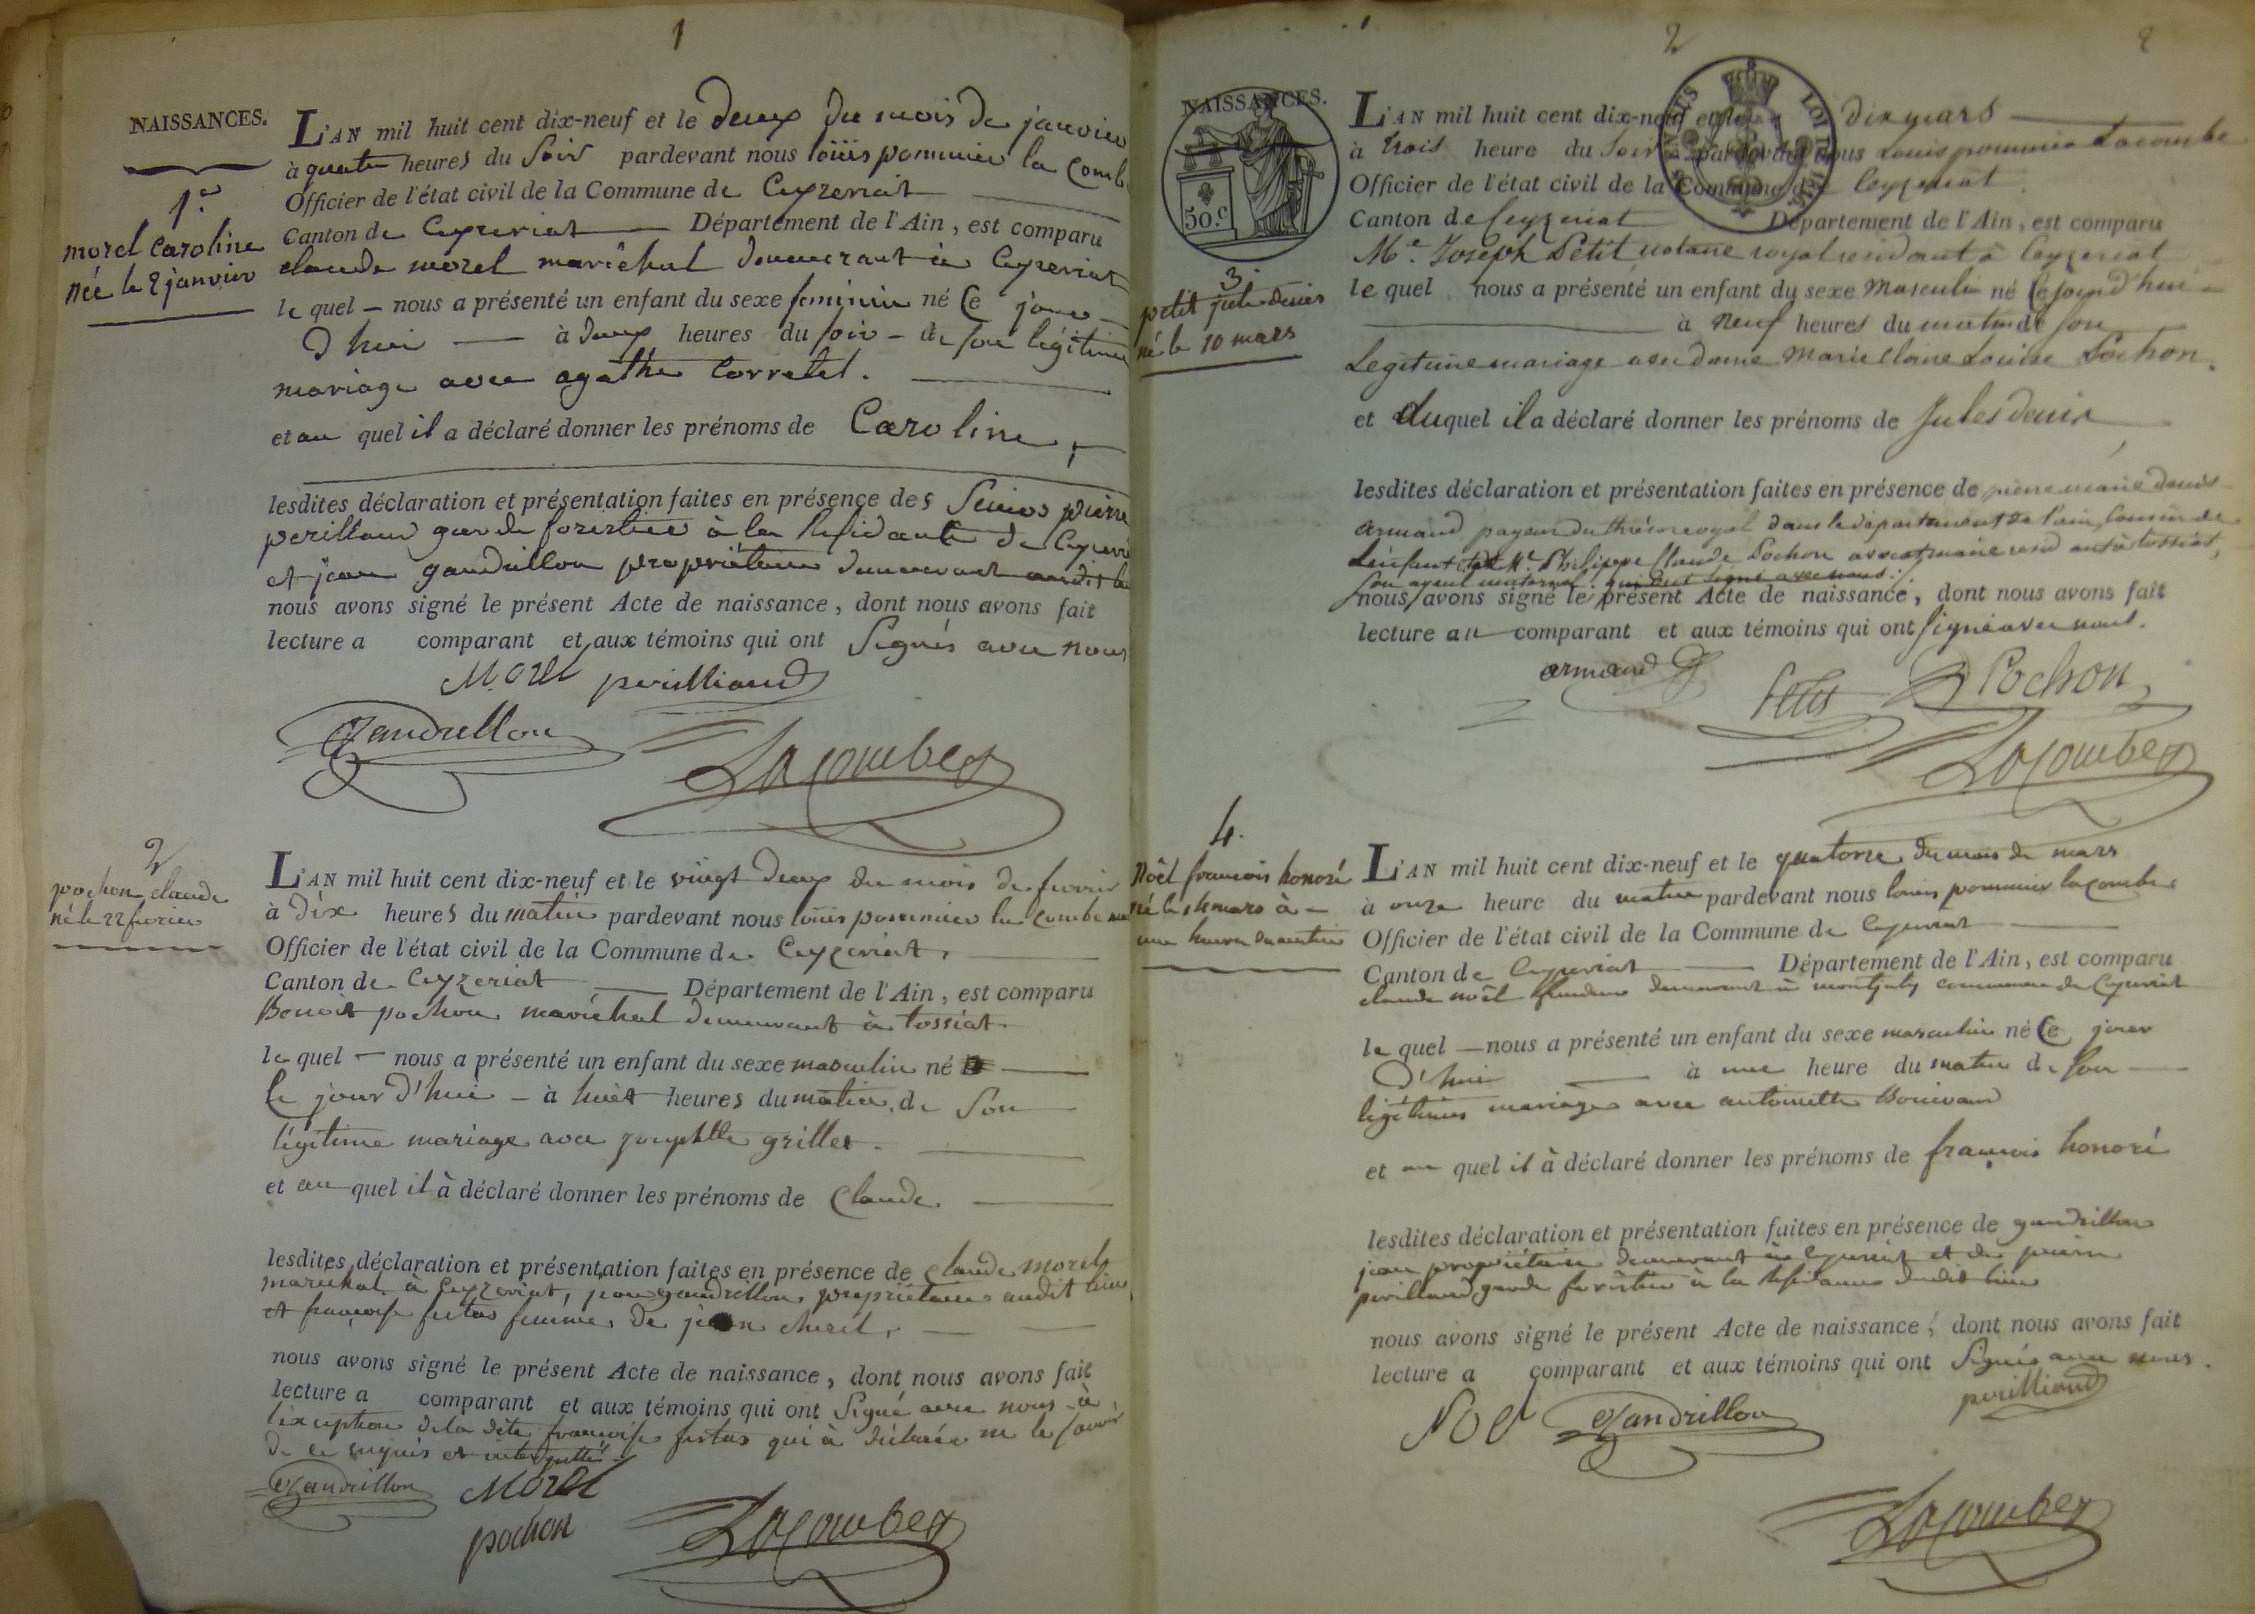 1
NAISSANCES.
1.er
morel caroline
née le 2 janvier
L'AN mil huit cent dix-neuf et le deux du mois de janvier
à quatre heures du soir pardevant nous loüis pommier la combe
Officier de l'état civil de la Commune de Ceyzeriat
Canton de Ceyzeriat Département de l'Ain, est comparu
claude morel maréchal demeurant à Ceyzeriat
le quel nous a présenté un enfant du sexe feminin né Ce jour
d'hui à deux heures du soir de son légitime
mariage avec agathe Corretel.
et au quel il a déclaré donner les prénoms de Caroline,
lesdites déclaration et présentation faites en présence des Sieurs pierre
perilliaud garde forestier à la Residance de Ceyzeri
et jean gaudrillon propriétaire demeurant audit lieu
nous avons signé le présent Acte de naissance, dont nous avons fait
lecture a comparant et aux témoins qui ont Signés avec nous
Morel perilliaud
Gandrillon
LaCombe
2
pochon claude
né le 22 fevrier
L'AN mil huit cent dix-neuf et le vingt deux du mois de fevrier
à dix heures du matin pardevant nous loüis pommier la combe
Officier de l'état civil de la Commune de Ceyzeriat,
Canton de Ceyzeriat Département de l'Ain, est comparu
Benoit pochon maréchal demeurant à tossiat
le quel nous a présenté un enfant du sexe masculin né
Ce jour d'hui à huit heures du matin, de Son
légitime mariage avec josephtte grillet.
et au quel il à déclaré donner les prénoms de Claude.
lesdites déclaration et présentation faites en présence de Claude morel
marechal à Ceyzeriat, jean gandrillon propriétaire audit lieu,
et françoise festas femme de jean
nous avons signé le présent Acte de naissance, dont nous avons fait
lecture a comparant et aux témoins qui ont Signé avec nous à
l'exception de la dite françoise festas qui à déclarée ne le savoir
de ce enquis et interpellé
Gandrillon Morel
pochon
LaCombe
2
2
NAISSANCES.
50.c
3.
petit jule-denis
né le 10 mars
L'AN mil huit cent dix-neuf et le dix mars
à trois heure du Soir pardevant nous Louis pommier Lacombe
Officier de l'état civil de la Commune de Ceyzeriat
Canton de Ceyzeriat Département de l'Ain, est comparu
M.e Joseph Petit notaire royal residant à Ceyzeriat
le quel nous a présenté un enfant du sexe Masculin né Cejourd'hui
à neuf heures du matin de son
Legitime mariage avec dame Marie Claire Louise Pochon.
et duquel il a déclaré donner les prénoms de Jules denis
lesdites déclaration et présentation faites en présence de pierre marie denis
armand payeur du thrésor royal dans le département de l'ain, Cousin de
L'enfant et de M.e Philippe Claude Pochon avocat maire residant à tossiat,
son ayeul maternel, qui ont signé avec nous.
nous avons signé le présent Acte de naissance, dont nous avons fait
lecture au comparant et aux témoins qui ont signé avec nous.
armand
Petit Pochon
LaCombe
4.
Noël francois honoré
né le 14 mars à
une heure du matin
L'AN mil huit cent dix-neuf et le quatorze du mois de mars
à onze heure du matin pardevant nous louis pommier lacombe
Officier de l'état civil de la Commune de Ceyzeriat
Canton de Ceyzeriat Département de l'Ain, est comparu
claude noël demeurant à montjuly commune de Ceyzeriat
le quel nous a présenté un enfant du sexe masculin né Ce jour
d'hui à une heure du matin de son
légitime mariage avec antoinette
et au quel il à déclaré donner les prénoms de françois honoré
lesdites déclaration et présentation faites en présence de gandrillon
jean propriétaire demeurant à Ceyzeriat et de pierre
perilliaud garde forestier à la Residance dudit lieu
nous avons signé le présent Acte de naissance, dont nous avons fait
lecture a comparant et aux témoins qui ont Signés avec nous.
Noel Gandrillon perilliaud
LaCombe